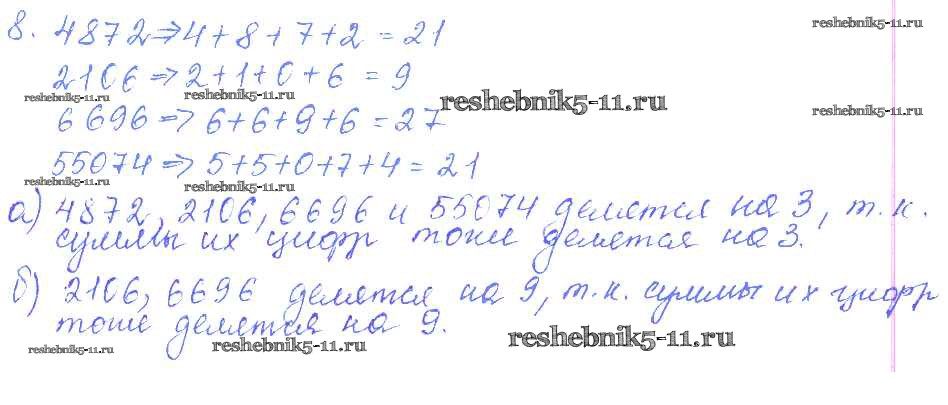 8. 4872 => 4+8+7+2 = 21
reshebnik5-11.ru
2106 => 2+1+0+6 = 9
reshebnik5-11.ru reshebnik5-11.ru reshebnik5-11.ru
6696 => 6+6+9+6 = 27
reshebnik5-11.ru
55074 => 5+5+0+7+4 = 21
reshebnik5-11.ru reshebnik5-11.ru
а) 4872, 2106, 6696 и 55074 делятся на 3, т.к.
суммы их цифр тоже делятся на 3.
б) 2106, 6696 делятся на 9, т.к. суммы их цифр
тоже делятся на 9.
reshebnik5-11.ru reshebnik5-11.ru reshebnik5-11.ru